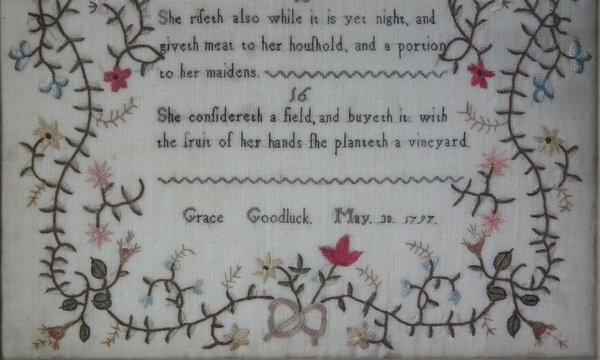 She riſeth also while it is yet night, and
giveth meat to her houſhold, and a portion
to her maidens.
16
She conſidereth a field, and buyeth it: with
the fruit of her hands ſhe planteth a vineyard.
Grace Goodluck. May. 30. 1797.